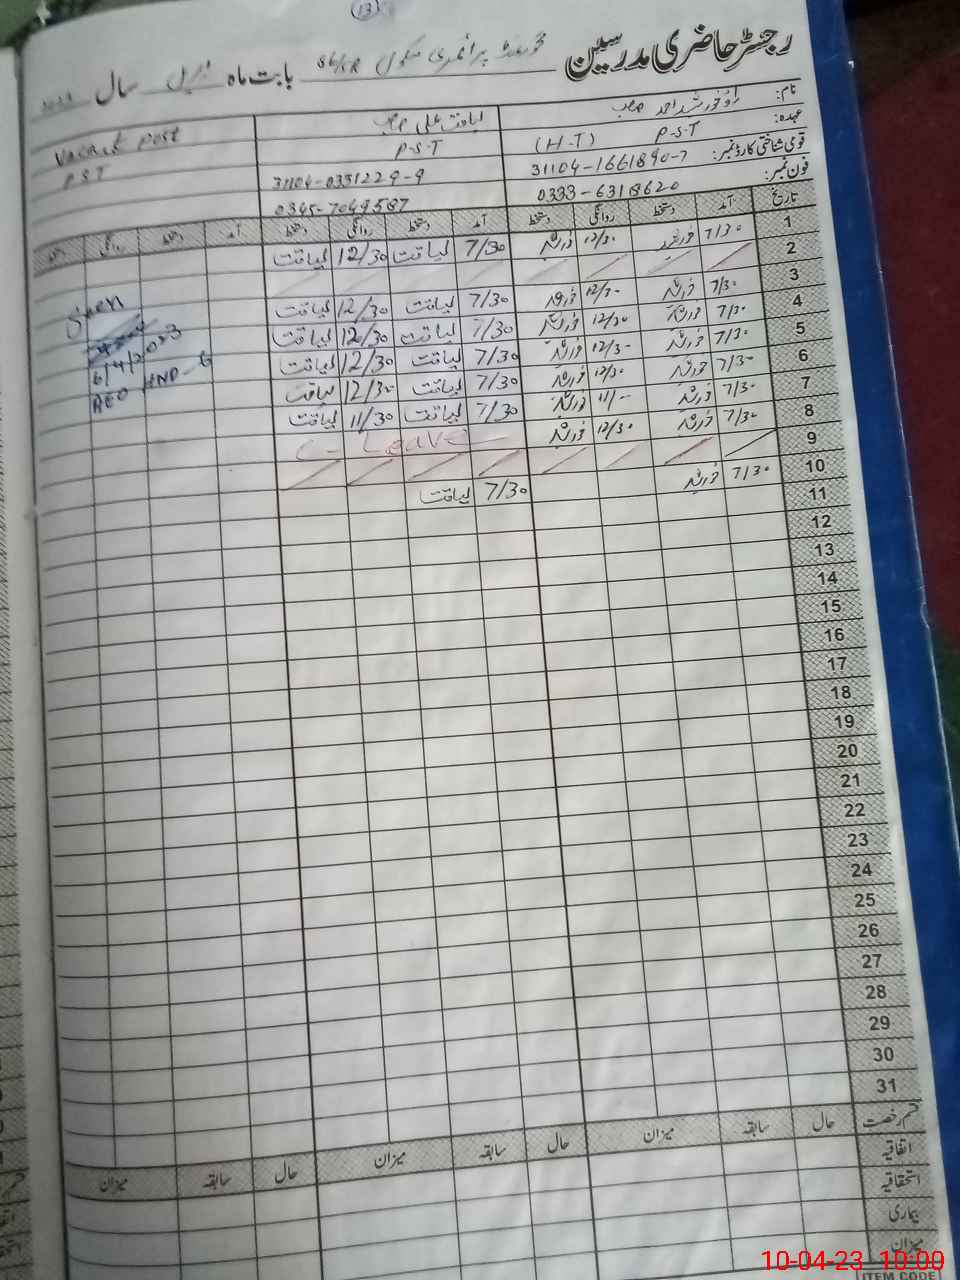 13
رجسٹر حاضری مدرسین گورنمنٹ پرائمری سکول 86/6R بابت ماہ اپریل سال
نام: راؤ خورشید احمد صاحب لیاقت علی صاحب Vacant post
عہدہ: P.S.T (H.T) P.S.T P.S.T
قومی شناختی کارڈ نمبر: 31104-1661890-7 31104-0331229-9
فون نمبر: 0333-6318620 0345-7049587
تاریخ آمد دستخط روانگی دستخط آمد دستخط روانگی دستخط آمد دستخط روانگی دستخط
1 7/30 خورشید 12/30 خورشید 7/30 لیاقت 12/30 لیاقت
2
3 7/30 خورشید 12/30 خورشید 7/30 لیاقت 12/30 لیاقت
4 7/30 خورشید 12/30 خورشید 7/30 لیاقت 12/30 لیاقت
5 7/30 خورشید 12/30 خورشید 7/30 لیاقت 12/30 لیاقت
6 7/30 خورشید 12/30 خورشید 7/30 لیاقت 12/30 لیاقت
7 7/30 خورشید 11/00 خورشید 7/30 لیاقت 11/30 لیاقت
8 7/30 خورشید 12/30 خورشید C- Leave
9
10 7/30 خورشید 7/30 لیاقت
11
12
13
14
15
16
17
18
19
20
21
22
23
24
25
26
27
28
29
30
31
Seen
6/4/2023
AEO HND-6
قسم رخصت حال سابقہ میزان حال سابقہ میزان حال سابقہ میزان
اتفاقیہ
استحقاقیہ
بیماری
میزان
10-04-23 10:00
ITEM CODE